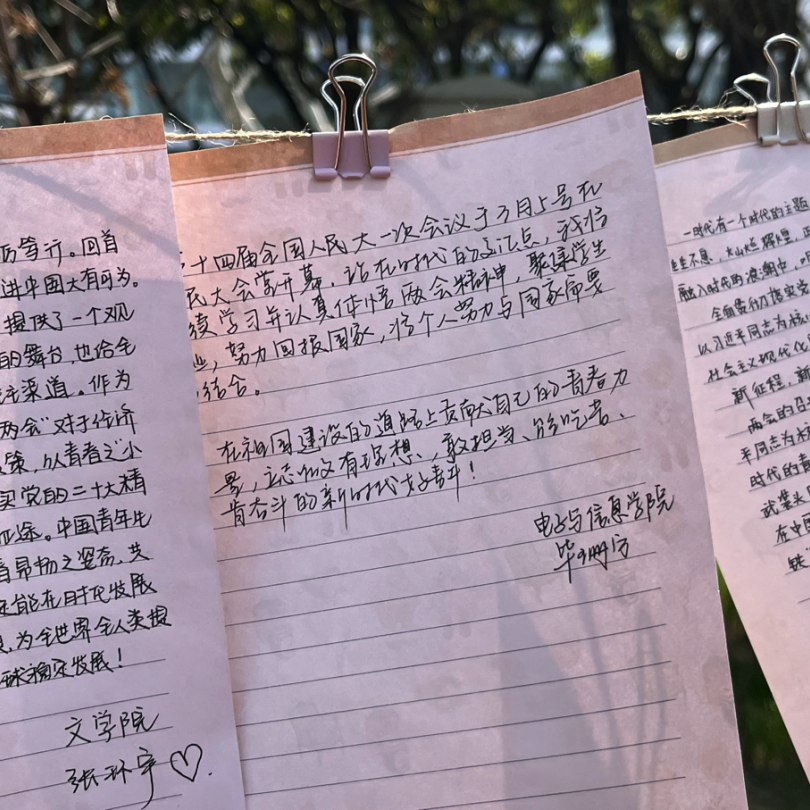 历笃行。回首
进中国大有可为。
提供了一个观
的舞台，也给全
主渠道。作为
两会"对于经济
策，从青春之"小
实党的二十大精
征途。中国青年也
着昂扬之姿态，共
定能在时代发展
为全世界全人类提
球稳定发展！
文学院
张环宇
十四届全国人民大一次会议于3月5号在
民大会堂开幕，站在时代的交汇点，我将
续学习并认真体悟两会精神，聚集学生
业，努力回报国家，将个人努力与国家需要
结合。
在祖国建设的道路上贡献自己的青春力
量，立志做有理想、敢担当、能吃苦、
肯奋斗的新时代好青年！
电子与信息学院
毕
一时代有一个时代的主题
生生不息，火山烂辉煌，
融入时代的浪潮中，
全面贯彻落实党
以习近平同志为核心
社会主义现代化
新征程，新
两会的召
平同志为核
时代的青
武装头
在中